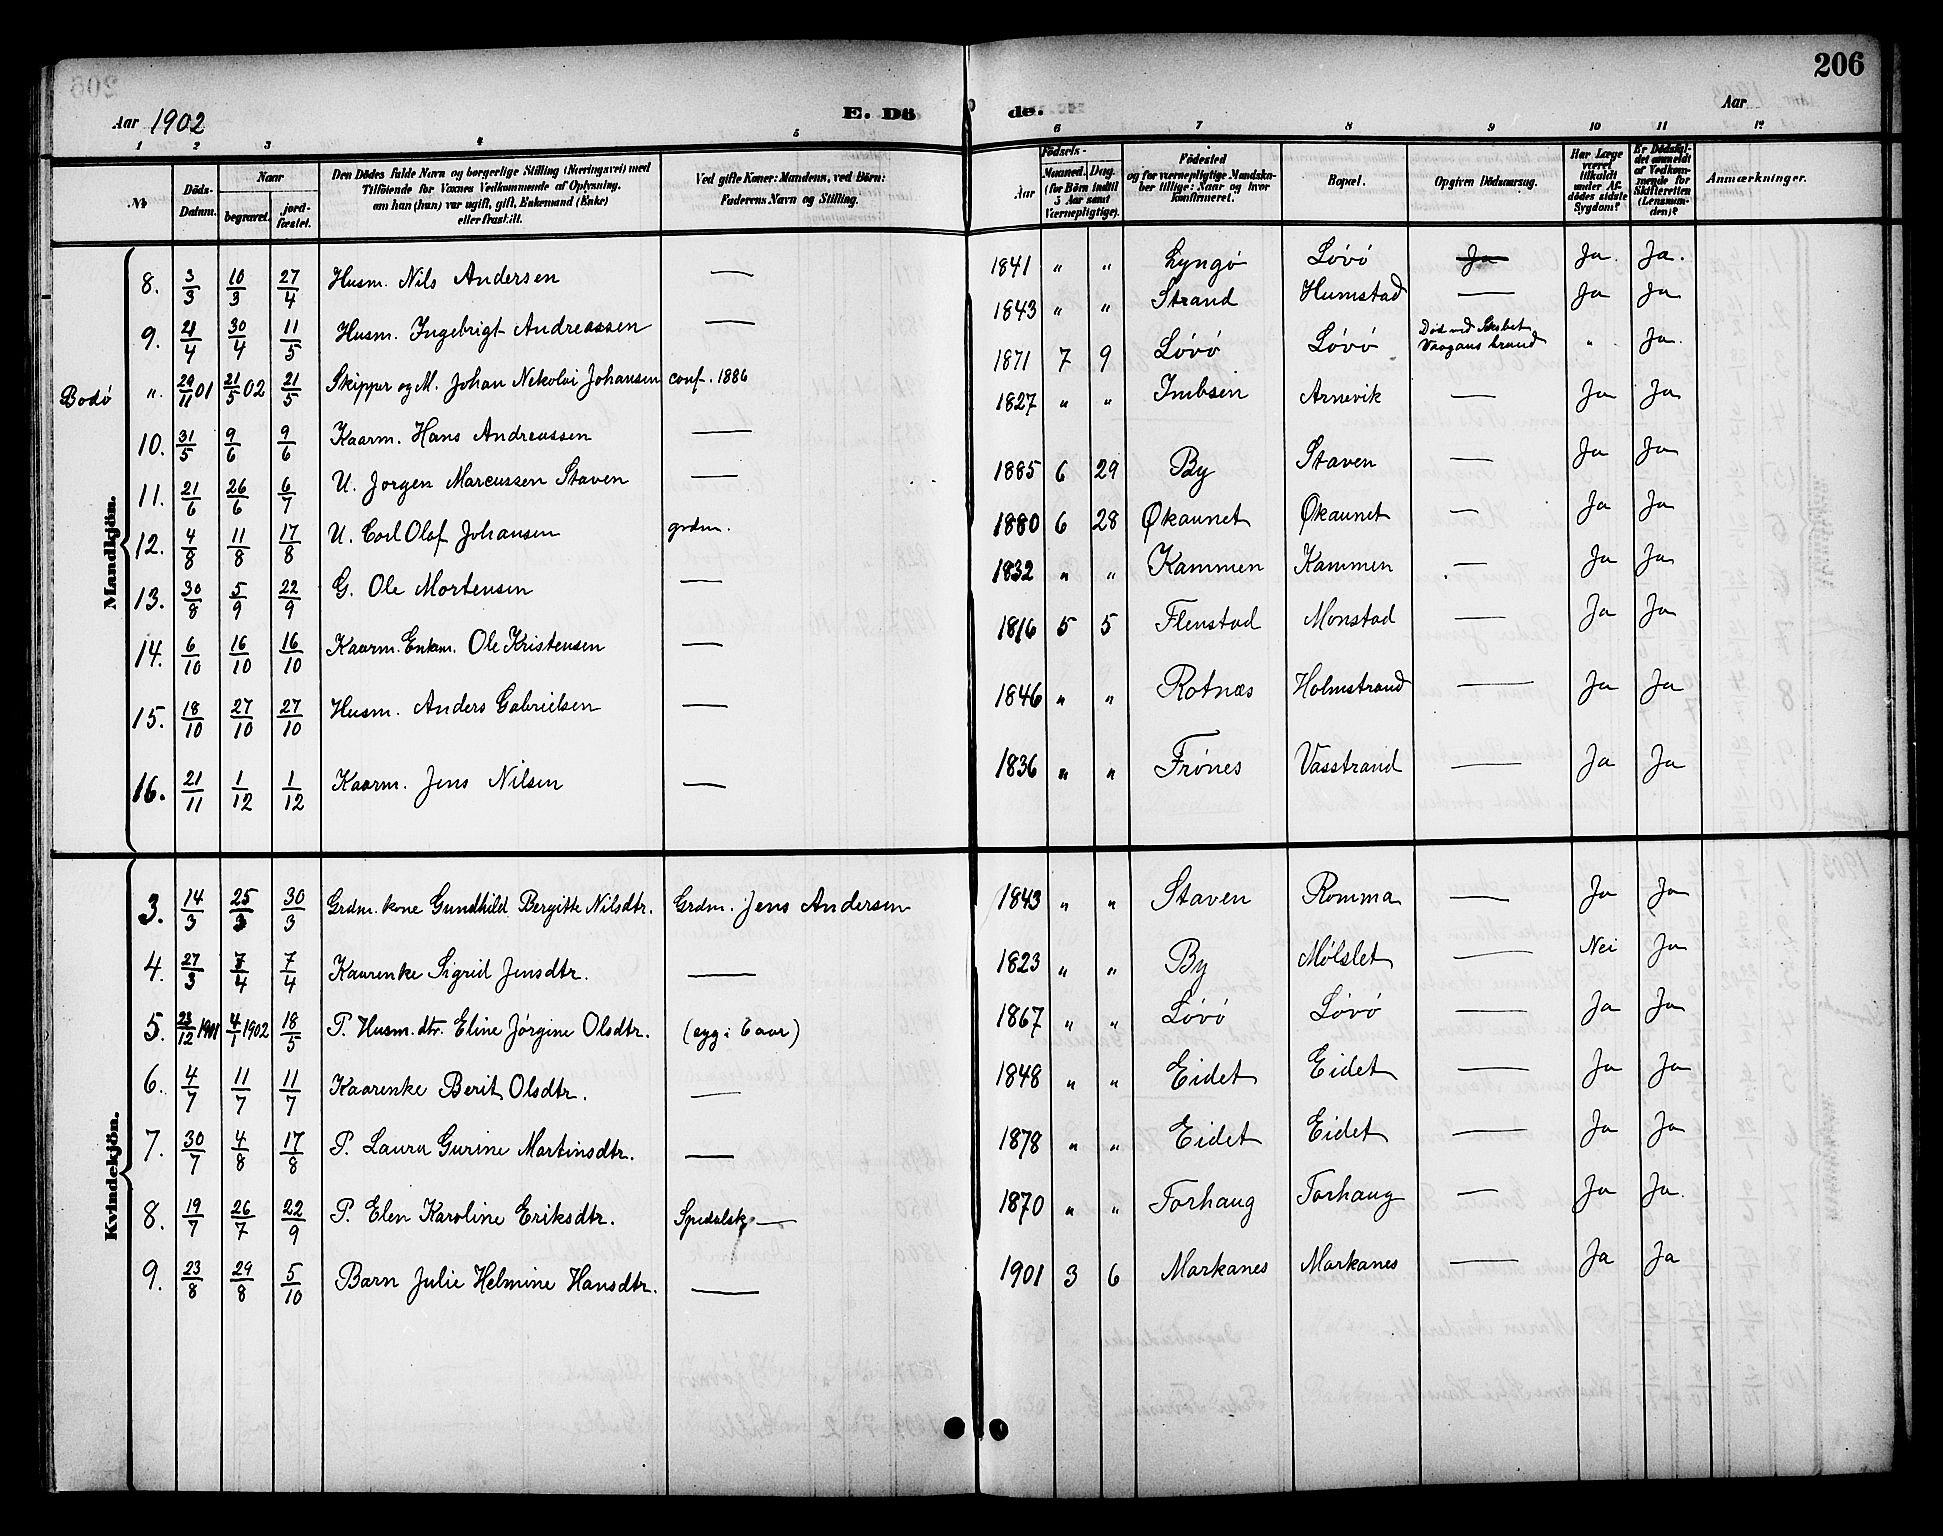 206
Aar 1902 E. Dö de. Aar
1 2 3 4 5 6 7 8 9 10 11 12
№ Döds-Datum. Naar begravet. jord-fæstet. Den Dödes fulde Navn og borgerlige Stilling (Næringsvei) med Tilföiende for Voxnes Vedkommende af Oplysning, om han (hun) var ugift, gift, Enkemand (Enke) eller fraskilt. Ved gifte Koner: Mandens, ved Börn: Faderens Navn og Stilling. Födsels- Aar Maaned. Dag. (for Börn indtil 5 Aar samt Værnepligtige). Födested og for værnepligtige Mandskaber tillige: Naar og hvor konfirmeret. Bopæl. Opgiven Dödsaarsag. Har Læge været tilkaldt under Afdödes sidste Sygdom? Er Dödsfaldet anmeldt af Vedkommende for Skifteretten (Lensmanden)? Anmærkninger.
Mandkjön.
8. 3/3 10/3 27/4 Husm. Nils Andersen — 1841 " " Lyngö Lövö Ja Ja. Ja.
9. 21/4 30/4 11/5 Husm. Ingebrigt Andreassen — 1843 " " Strand Humstad — Ja Ja
Bodö ". 29/11 01 21/5 02 21/5 Skipper og M. Johan Nekolai Johansen conf. 1886 1871 7 9 Lövö Lövö Död ved Vaagans brand " Ja.
10. 31/5 9/6 9/6 Kaarm. Hans Andreassen — 1827 " " Imbsen Arnevik — Ja Ja
11. 21/6 26/6 6/7 U. Jorgen Marcussen Staven — 1885 6 29 By Staven — Ja Ja
12. 4/8 11/8 17/8 U. Carl Olaf Johansen grdm. 1880 6 28 Økaunet Økaunet — Ja Ja
13. 30/8 5/9 22/9 G. Ole Mortensen — 1832 " " Kammen Kammen — Ja Ja
14. 6/10 16/10 16/10 Kaarm. Enkm. Ole Kristensen — 1816 5 5 Flenstad Monstad — Ja Ja
15. 18/10 27/10 27/10 Husm. Anders Gabrielsen — 1846 " " Rotnæs Holmstrand — Ja Ja
16. 21/11 1/12 1/12 Kaarm. Jens Nilsen — 1836 " " Frönes Vasstrand — Ja Ja
Kvindekjön.
3. 14/3 25/3 30/3 Grdm. kone Gundhild Bergitte Nilsdtr. Grdm. Jens Andersen 1843 " " Staven Romma — Ja Ja
4. 27/3 7/4 7/4 Kaarenke Sigrid Jensdtr. — 1823 " " By Mölslet — Nei Ja
5. 23/12 1901 4/1 1902 18/5 P. Husm. dtr. Eline Jörgine Olsdtr. (syg i 6 aar) 1867 " " Lövö Lövö — Ja Ja
6. 4/7 11/7 11/7 Kaarenke Berit Olsdtr. — 1848 " " Eidet Eidet — Ja Ja
7. 30/7 4/8 17/8 P. Laura Gurine Martinsdtr. — 1878 " " Eidet Eidet — Ja Ja
8. 19/7 26/7 22/9 P. Elen Karoline Eriksdtr. Spedalsk — 1870 " " Torhaug Torhaug — Ja Ja.
9. 23/8 29/8 5/10 Barn Julie Helmine Hansdtr. — 1901 3 6 Markanes Markanes — Ja Ja